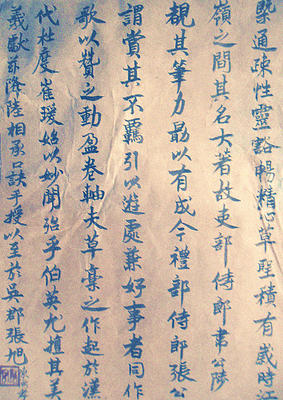 槩通疎性靈豁暢精心草聖積有歲時江
嶺之間其名大著故吏部侍郎韋公陟
覩其筆力勗以有成今禮部侍郎張公
謂賞其不羈引以遊處兼好事者同作
歌以贊之動盈卷軸夫草稾之作起於漢
代杜度崔瑗始以妙聞迨乎伯英尤擅其美
羲獻茲降陸相承口訣手授以至於吳郡張旭